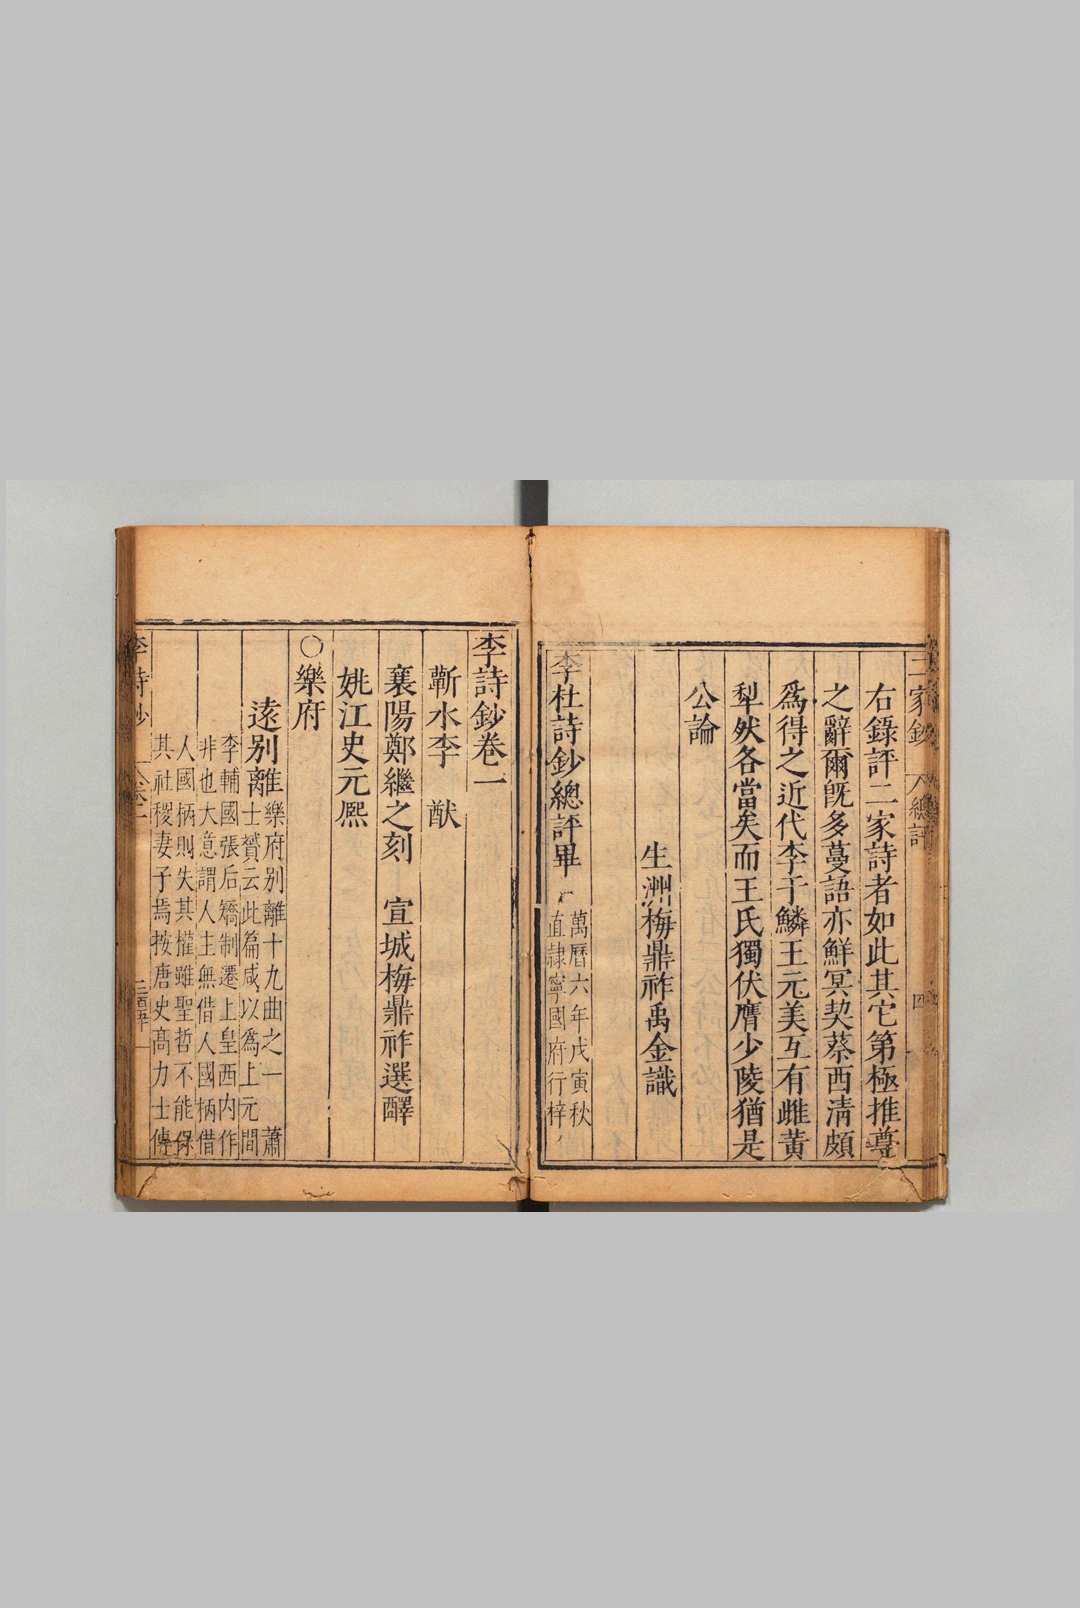 右錄評二家詩者如此其它第極推尊
之辭爾既多蔓語亦鮮冥契蔡西清頗
爲得之近代李于鱗王元美互有雌黄
犁然各當矣而王氏獨伏膺少陵猶是
公論
生洲梅鼎祚禹金識
李杜詩鈔總評畢
萬曆六年戊寅秋
直隸寧國府行梓
李詩鈔卷一
蘄水李 猷
襄陽鄭繼之刻 宣城梅鼎祚選釋
姚江史元熈
〇樂府
遠别離
樂府别離十九曲之一 蕭
士贇云此篇咸以爲上元間
李輔國張后矯制遷上皇西内作
非也大意謂人主無借人國柄借
人國柄則失其權雖聖哲不能保
其社稷妻子焉按唐史髙力士傳